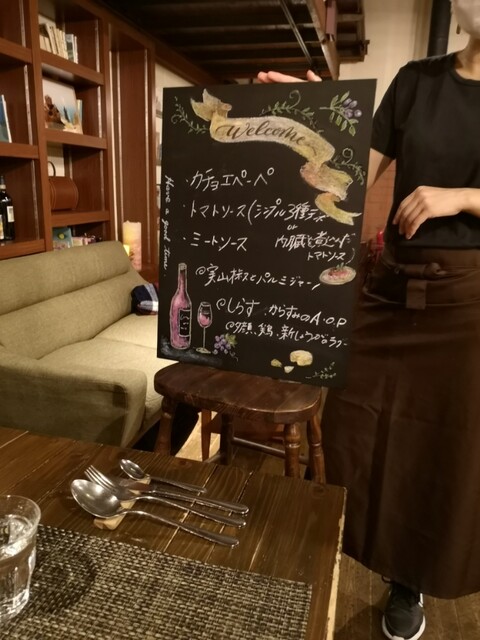 Welcome
・カチョエペーペ
・トマトソース(シンプル3種チーズ
or
・ミートソース
内臓を煮こんだ
トマトソース)
@実山椒とパルミジャーノ
@しらす、からすみのA.O.P
鶏、新しょうがのラグー
Have a good time